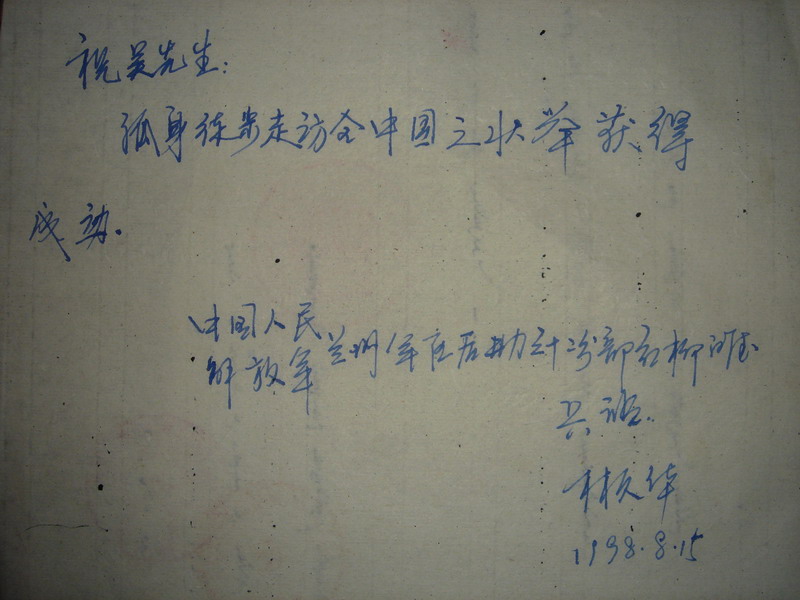 祝吴先生:
孤身徒步走访全中国之壮举获得
成功.
中国人民
解放军兰州军区后勤三十分部红柳
兵
华
1998.8.15